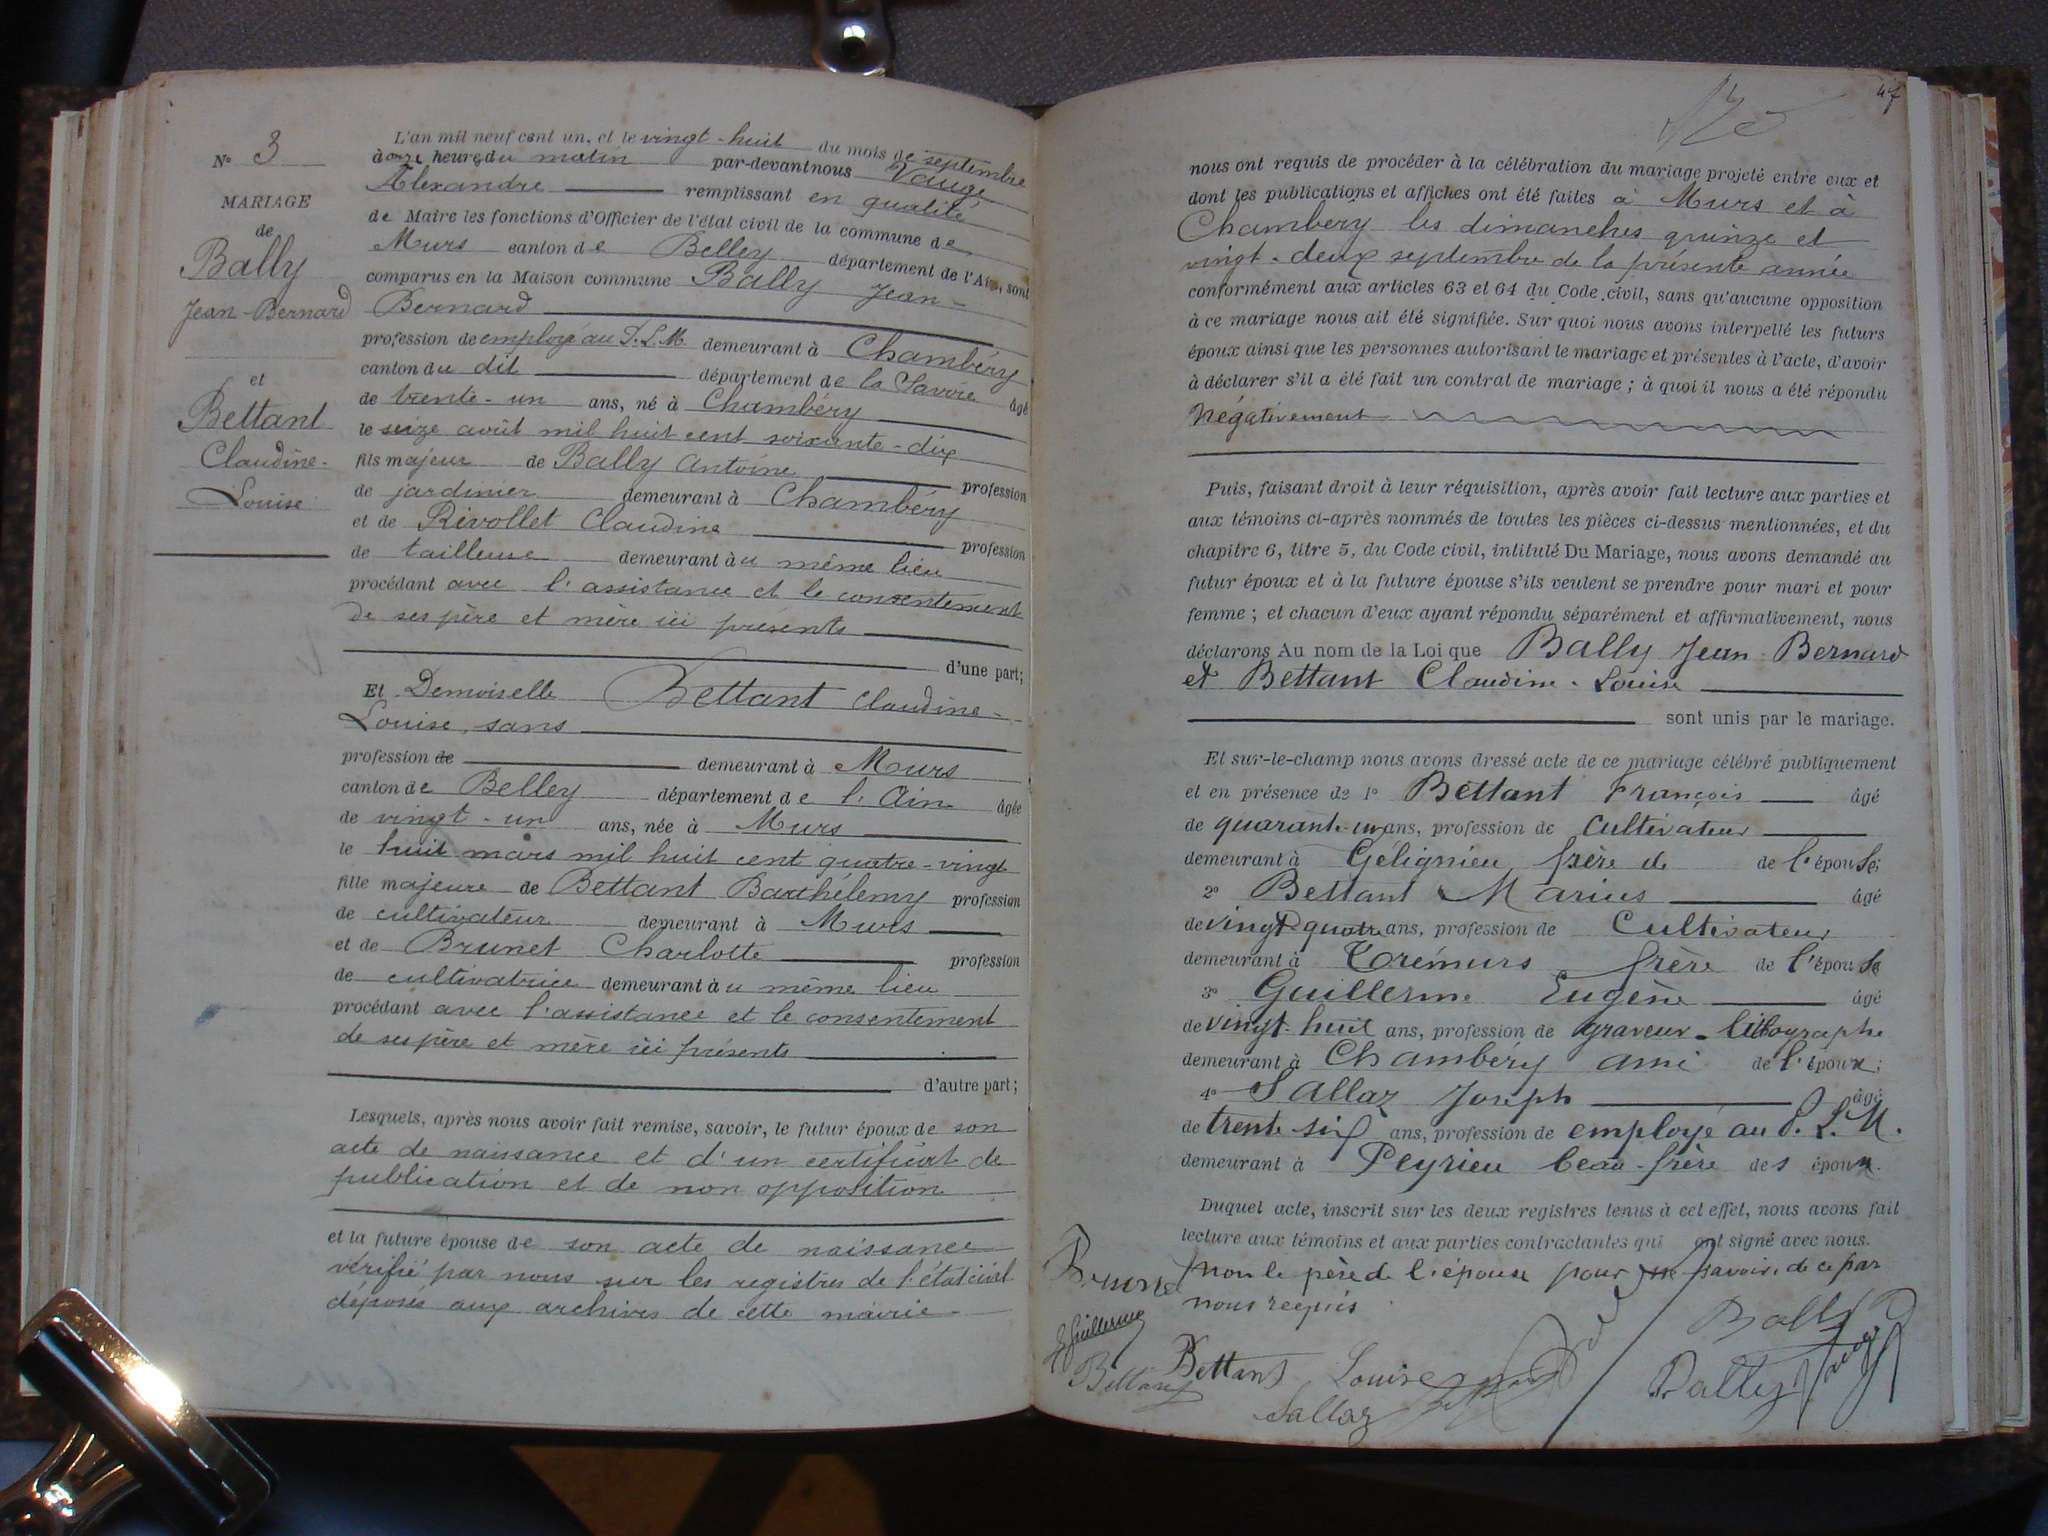 N° 3
MARIAGE
de
Bally
Jean-Bernard
et
Bettant
Claudine-
Louise
L'an mil neuf cent un, et le vingt-huit du mois de septembre
à onze heures du matin par-devant nous Vauge
Alexandre remplissant en qualité
de Maire les fonctions d'Officier de l'état civil de la commune de
Murs canton de Belley département de l'Ain, sont
comparus en la Maison commune Bally Jean-
Bernard
profession de employé au P.L.M. demeurant à Chambéry
canton du dit département de la Savoie âgé
de trente-un ans, né à Chambéry
le seize août mil huit cent soixante-dix
fils majeur de Bally Antoine profession
de jardinier demeurant à Chambéry
et de Rivollet Claudine profession
de tailleuse demeurant au même lieu
procédant avec l'assistance et le consentement
de ses père et mère ici présents
d'une part;
Et Demoiselle Bettant Claudine-
Louise, sans
profession de demeurant à Murs
canton de Belley département de l'Ain âgée
de vingt-un ans, née à Murs
le huit mars mil huit cent quatre-vingt
fille majeure de Bettant Barthélemy profession
de cultivateur demeurant à Murs
et de Brunet Charlotte profession
de cultivatrice demeurant au même lieu
procédant avec l'assistance et le consentement
de ses père et mère ici présents
d'autre part;
Lesquels, après nous avoir fait remise, savoir, le futur époux de son
acte de naissance et d'un certificat de
publication et de non opposition
et la future épouse de son acte de naissance
vérifié par nous sur les registres de l'état civil
déposés aux archives de cette mairie
47
nous ont requis de procéder à la célébration du mariage projeté entre eux et
dont les publications et affiches ont été faites à Murs et à
Chambéry les dimanches quinze et
vingt-deux septembre de la présente année
conformément aux articles 63 et 64 du Code civil, sans qu'aucune opposition
à ce mariage nous ait été signifiée. Sur quoi nous avons interpellé les futurs
époux ainsi que les personnes autorisant le mariage et présentes à l'acte, d'avoir
à déclarer s'il a été fait un contrat de mariage; à quoi il nous a été répondu
négativement
Puis, faisant droit à leur réquisition, après avoir fait lecture aux parties et
aux témoins ci-après nommés de toutes les pièces ci-dessus mentionnées, et du
chapitre 6, titre 5, du Code civil, intitulé Du Mariage, nous avons demandé au
futur époux et à la future épouse s'ils veulent se prendre pour mari et pour
femme; et chacun d'eux ayant répondu séparément et affirmativement, nous
déclarons Au nom de la Loi que Bally Jean-Bernard
et Bettant Claudine-Louise
sont unis par le mariage.
Et sur-le-champ nous avons dressé acte de ce mariage célébré publiquement
et en présence de 1° Bettant François âgé
de quarante-un ans, profession de cultivateur
demeurant à Gélignieu frère de de l'épouse;
2° Bettant Marius âgé
de vingt quatre ans, profession de Cultivateur
demeurant à frère de l'épouse
3° Guillerme Eugène âgé
de vingt-huit ans, profession de graveur-lithographe
demeurant à Chambéry ami de l'époux;
4° Sallaz Joseph âgé
de trente six ans, profession de employé au P.L.M.
demeurant à Peyrieu beau-frère des époux.
Duquel acte, inscrit sur les deux registres tenus à cet effet, nous avons fait
lecture aux témoins et aux parties contractantes qui ont signé avec nous.
non le père de l'épouse pour ne savoir, de ce par
nous requis
Brunet
E Guillerme
Bettant
Bettant Louise
Sallaz
Bally
Bally